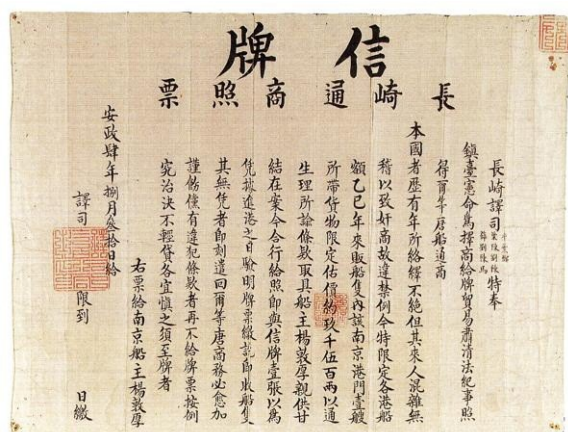 信牌
長崎通商照票
長崎譯司特奉
鎮臺憲命為擇商給牌貿易肅清法紀事照
得爾等唐船通商
本國者歷有年所絡繹不絕但其來人混雜無
稽以致奸商故違禁例今特限定各港船
額乙巳年來販船隻內該南京港門壹艘
所帶貨物限定估價約玖千伍百兩以通
生理所諭條款取具船主楊敦厚親供甘
結在案今合行給照即與信牌壹張以為
凭據進港之日驗明牌票繳訖即收船隻
其無凭者即刻遣回爾等唐商務必愈加
謹飭倘有違犯條款者再不給牌票按例
究治決不輕貸各宜慎之須至牌者
右票給南京船主楊敦厚
安政肆年捌月叁拾日給
譯司
限到 日繳